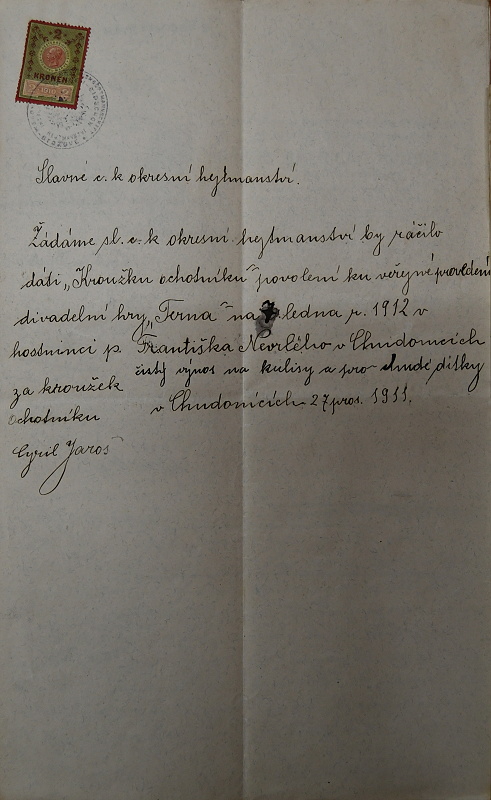 2
KRONEN
2 1910 2
Slavné c. k okresní hejtmanství.
Žádáme sl. c. k okresní hejtmanství by ráčilo
dáti „Kroužku ochotníků" povolení ku veřejné provedení
divadelní hry „Terna" na 7 ledna r. 1912 v
hostninci p. Františka Nevrlého v Chudonicích
čistý výnos na kulisy a pro chudé dítky
za kroužek
ochotníku
v Chudonicích 27 pros. 1911.
Cyril Jaroš